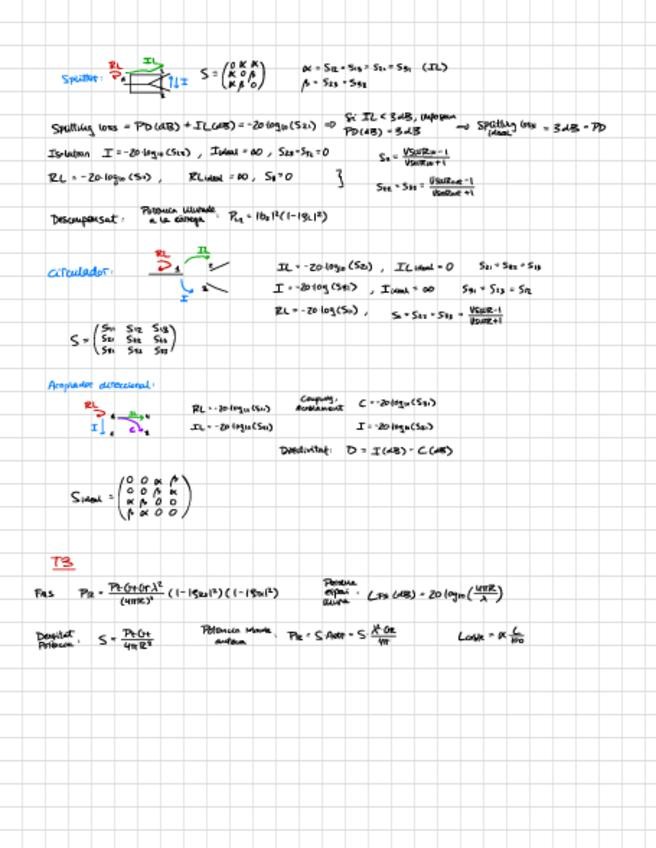 Splitter: RL IL I S = (0 α α / α 0 β / α β 0) α = S12 = S13 = S21 = S31 (IL)
β = S23 = S32
Splitting loss = PD(dB) + IL(dB) = -20 log10(S21) ⇒ Si IL < 3dB, PD(dB) = 3dB → Splitting loss ideal = 3dB = PD
Isolation I = -20 log10(S23), Iideal = ∞, S23 = S32 = 0
RL = -20 log10(S11), RLideal = ∞, S11 = 0 } S11 = VSWRin - 1 / VSWRin + 1
S22 = S33 = VSWRout - 1 / VSWRout + 1
Descompensat: Potencia lliurada a la càrrega PL1 = |b2|²(1-|ρL|²)
Circulador: RL IL I 1 IL = -20 log10(S21), ILideal = 0 S21 = S32 = S13
I = -20 log(S31), Iideal = ∞ S31 = S23 = S12
RL = -20 log10(S11), S11 = S22 = S33 = VSWR-1 / VSWR+1
S = (S11 S12 S13 / S21 S22 S23 / S31 S32 S33)
Acoplador direccional:
RL I C RL = -20 log10(S11) Coupling, Acoblament C = -20 log10(S31)
IL = -20 log10(S21) I = -20 log10(S41)
Directivitat: D = I(dB) - C(dB)
Sideal = (0 0 α β / 0 0 β α / α β 0 0 / β α 0 0)
T3
Friis PR = Pt Gt Gr λ² / (4πR)² (1-|S11|²)(1-|S22|²) espai lliure: LFS (dB) = 20 log10(4πR / λ)
Densitat Potencia: S = Pt Gt / 4πR² Potencia antena: PR = S Aeff = S λ² GR / 4π Lcable = α L / 100